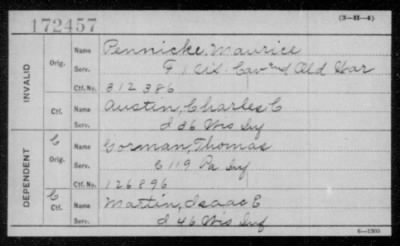 172457
(3-H-4)
INVALID
Orig.
Name Pennicke, Maurice
Serv. F 1 Del. Cav and Old Gar
Ctf. No. 312386
Ctf.
Name Austin, Charles C
Serv. d 36 Wis Inf
DEPENDENT
C
Orig.
Name Gorman, Thomas
Serv. C 119 Pa Inf
Ctf. No. 126896
C
Ctf.
Name Martin, Isaac E
Serv. d 46 Wis Inf
6-1305